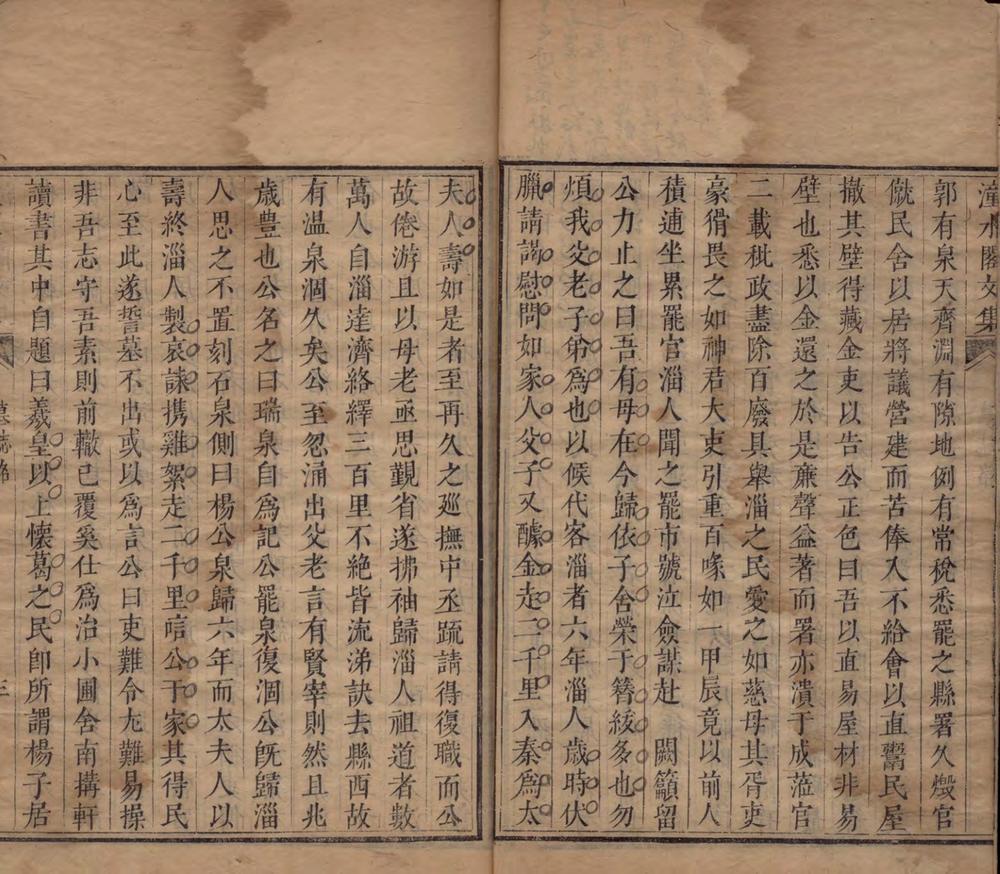 潼水閣文集
郭有泉天齊淵有隙地例有常稅悉罷之縣署久燬官
僦民舍以居將議營建而苦俸入不給會以直鬻民屋
撤其壁得藏金吏以告公正色曰吾以直易屋材非易
壁也悉以金還之於是亷聲益著而署亦潰于成蒞官
二載秕政盡除百廢具舉淄之民愛之如慈母其胥吏
豪猾畏之如神君大吏引重百喙如一甲辰竟以前人
積逋坐累罷官淄人聞之罷市號泣僉謀赴 闕籲留
公力止之曰吾有母在今歸依子舍榮于簪紱多也勿
煩我父老子弟爲也以候代客淄者六年淄人歲時伏
臘請謁慰問如家人父子又醵金走二千里入秦爲太
夫人壽如是者至再久之廵撫中丞疏請得復職而公
故倦游且以母老亟思覲省遂拂袖歸淄人祖道者數
萬人自淄達濟絡繹三百里不絶皆流涕訣去縣西故
有温泉涸久矣公至忽涌出父老言有賢宰則然且兆
歲豊也公名之曰瑞泉自爲記公罷泉復涸公旣歸淄
人思之不置刻石泉側曰楊公泉歸六年而太夫人以
壽終淄人製哀誄携雞絮走二千里唁公于家其得民
心至此遂誓墓不出或以爲言公曰吏難令尢難易操
非吾志守吾素則前轍已覆奚仕爲治小圃舍南搆軒
讀書其中自題曰羲皇以上懷葛之民卽所謂楊子居
墓誌銘
三